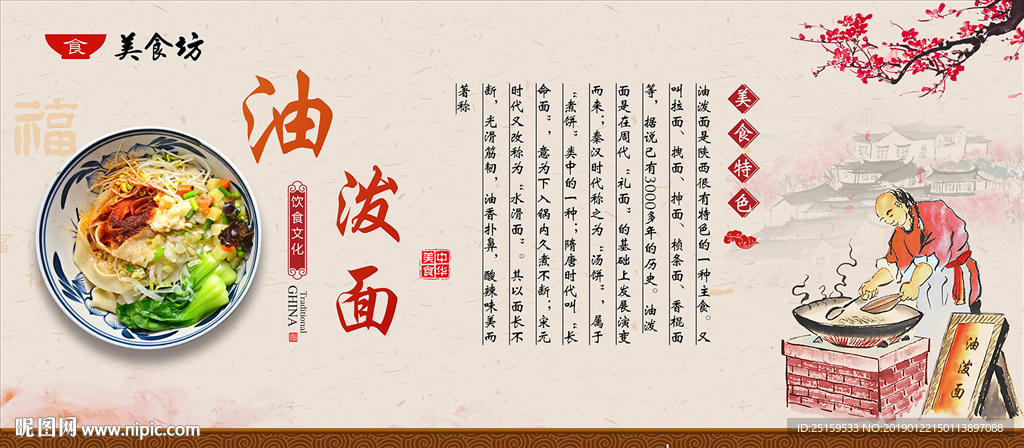 食
美食坊
福
油
泼
面
饮食文化
Traditional
GHINA
中华
美食
美食特色
油泼面是陕西很有特色的一种主食。又
叫拉面、拽面、抻面、桢条面、香棍面
等，据说已有3000多年的历史。油泼
面是在周代“礼面”的基础上发展演变
而来；秦汉时代称之为“汤饼”，属于
“煮饼”类中的一种；隋唐时代叫“长
命面”，意为下入锅内久煮不断；宋元
时代又改称为“水滑面”。其以面长不
断，光滑筋韧，油香扑鼻，酸辣味美而
著称
油泼面
昵图网 www.nipic.com
ID:25159533 NO:20190122150113897088